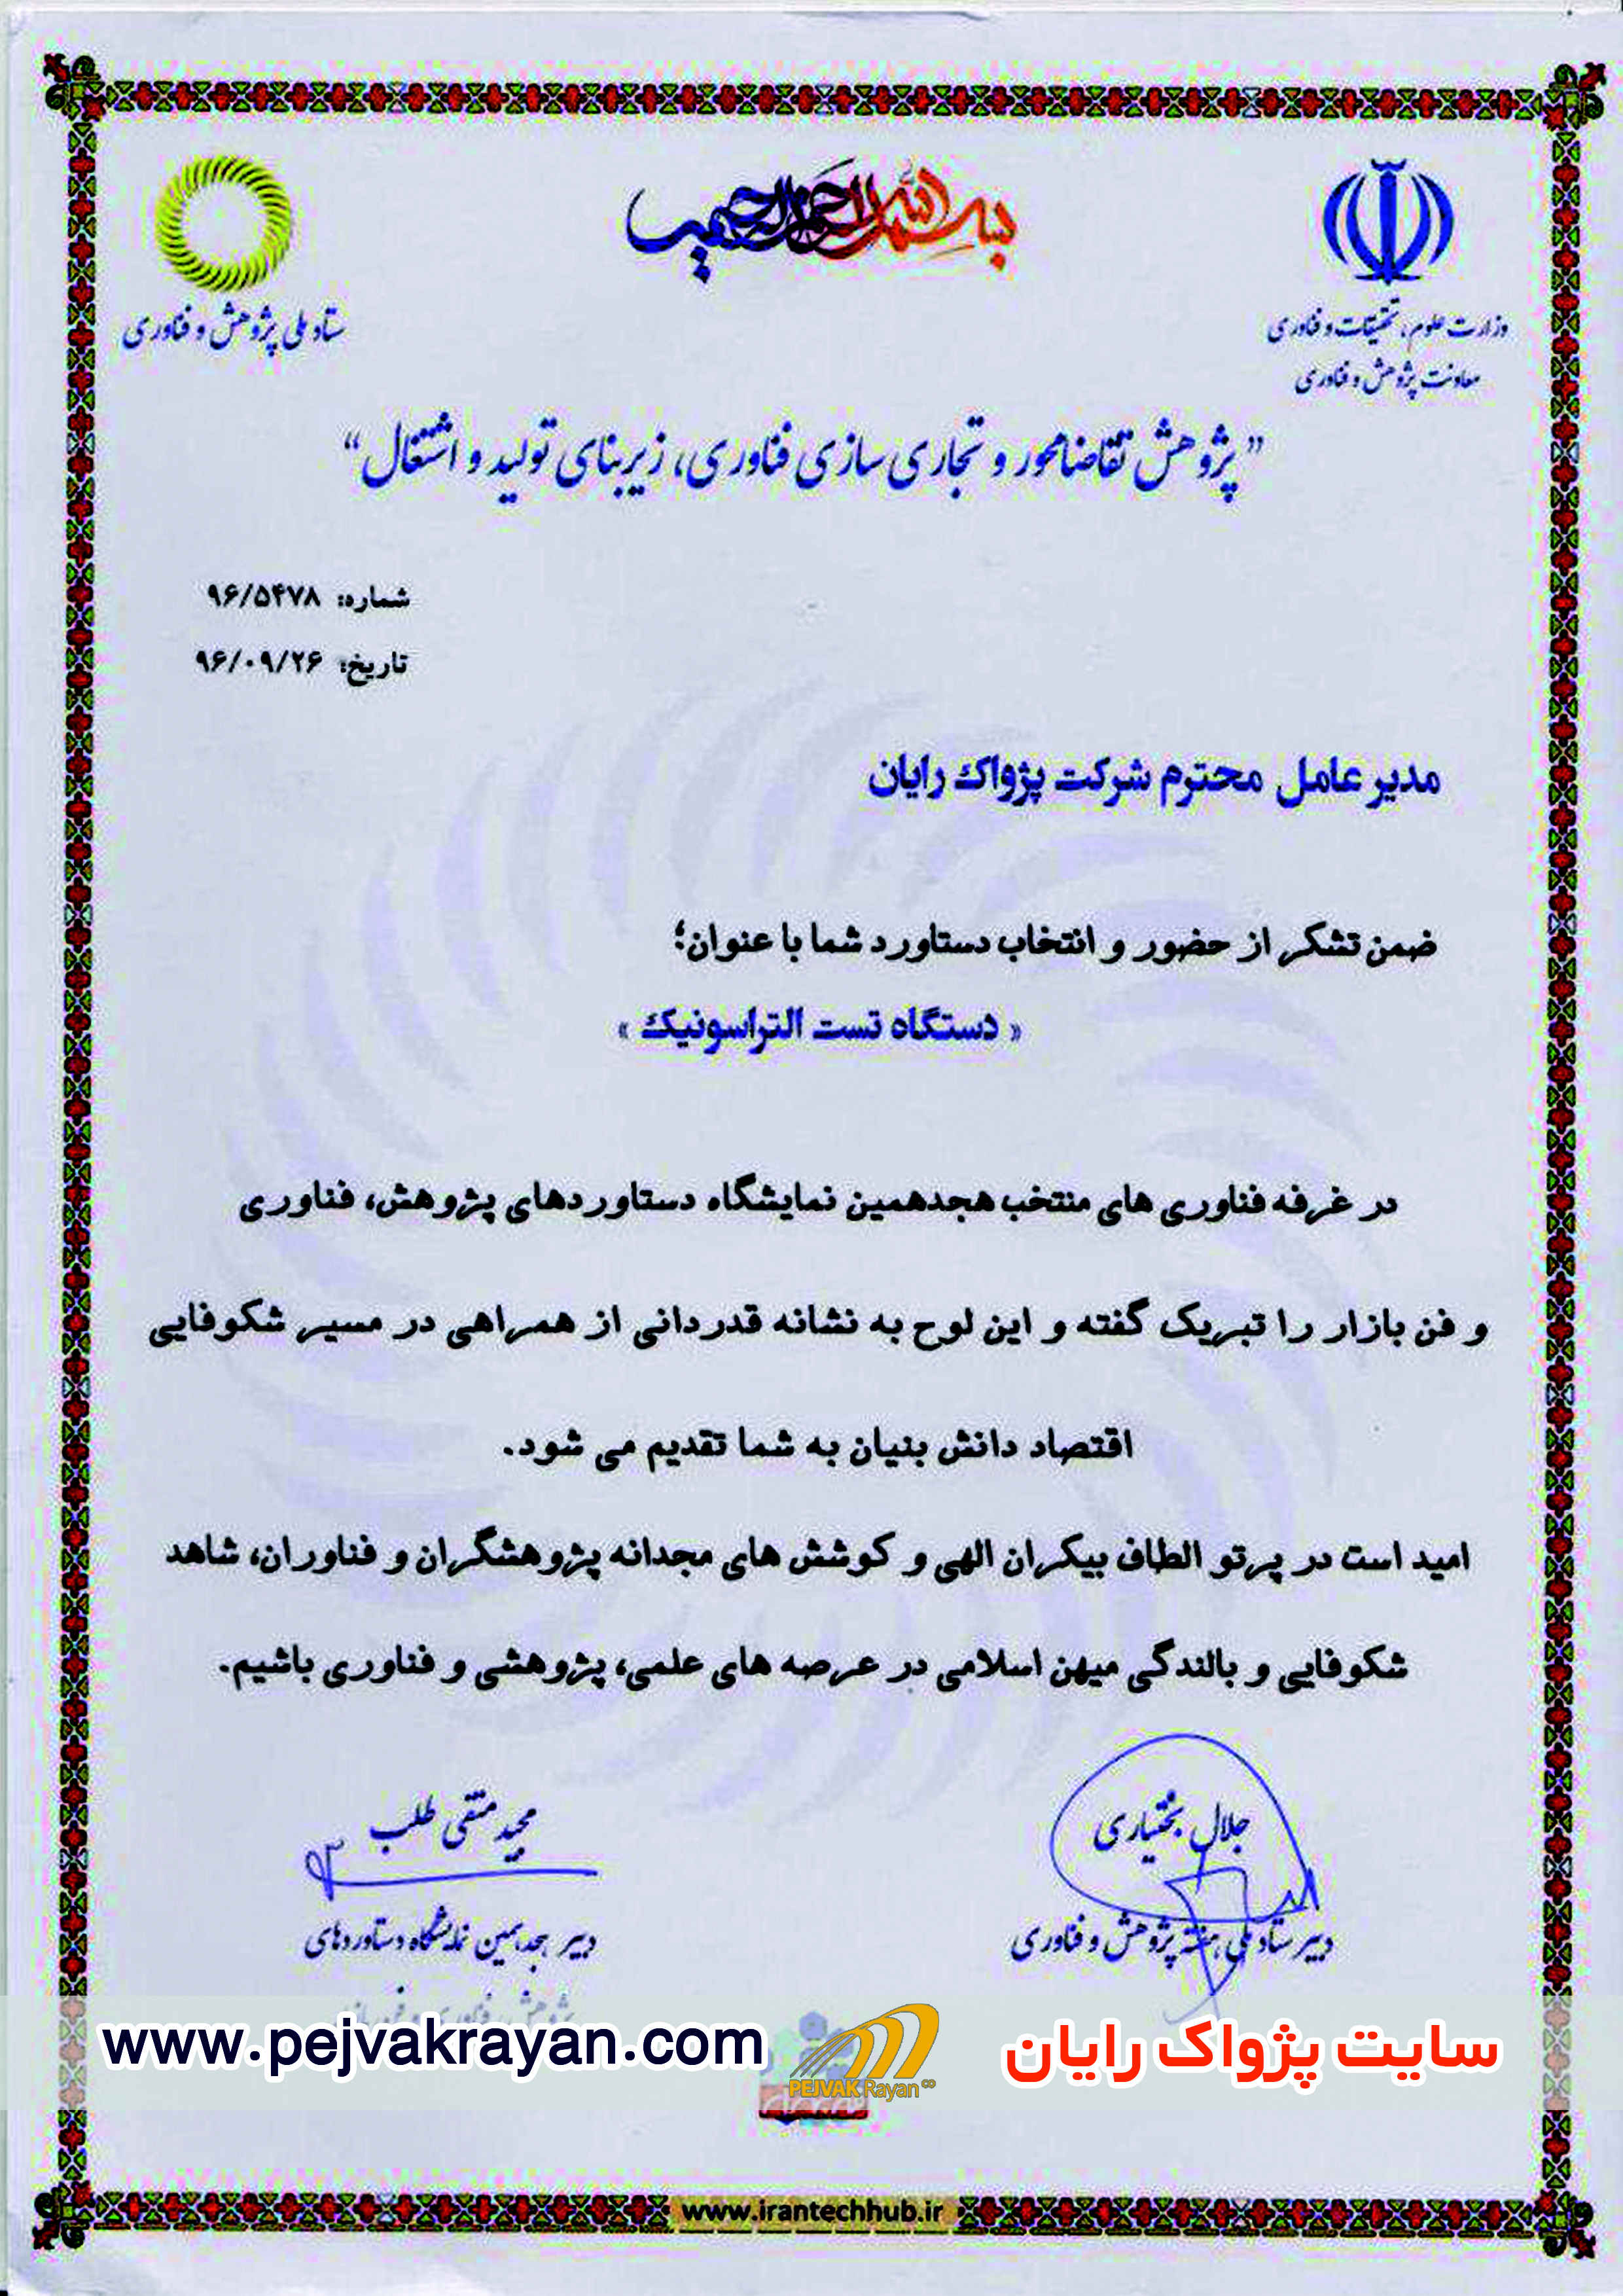 بسم الله الرحمن الرحیم
وزارت علوم، تحقیقات و فناوری
معاونت پژوهش و فناوری
ستاد ملی پژوهش و فناوری
”پژوهش تقاضامحور و تجاری سازی فناوری، زیربنای تولید و اشتغال“
شماره: ۹۶/۵۴۷۸
تاریخ: ۹۶/۰۹/۲۶
مدیر عامل محترم شرکت پژواک رایان
ضمن تشکر از حضور و انتخاب دستاورد شما با عنوان؛
« دستگاه تست التراسونیک »
در غرفه فناوری های منتخب هجدهمین نمایشگاه دستاوردهای پژوهش، فناوری
و فن بازار را تبریک گفته و این لوح به نشانه قدردانی از همراهی در مسیر شکوفایی
اقتصاد دانش بنیان به شما تقدیم می شود.
امید است در پرتو الطاف بیکران الهی و کوشش های مجدانه پژوهشگران و فناوران، شاهد
شکوفایی و بالندگی میهن اسلامی در عرصه های علمی، پژوهشی و فناوری باشیم.
جلال بختیاری
دبیر ستاد ملی هفته پژوهش و فناوری
مجید متقی طلب
دبیر هجدهمین نمایشگاه دستاوردهای
سایت پژواک رایان
PEJVAK Rayan co
www.pejvakrayan.com
www.irantechhub.ir